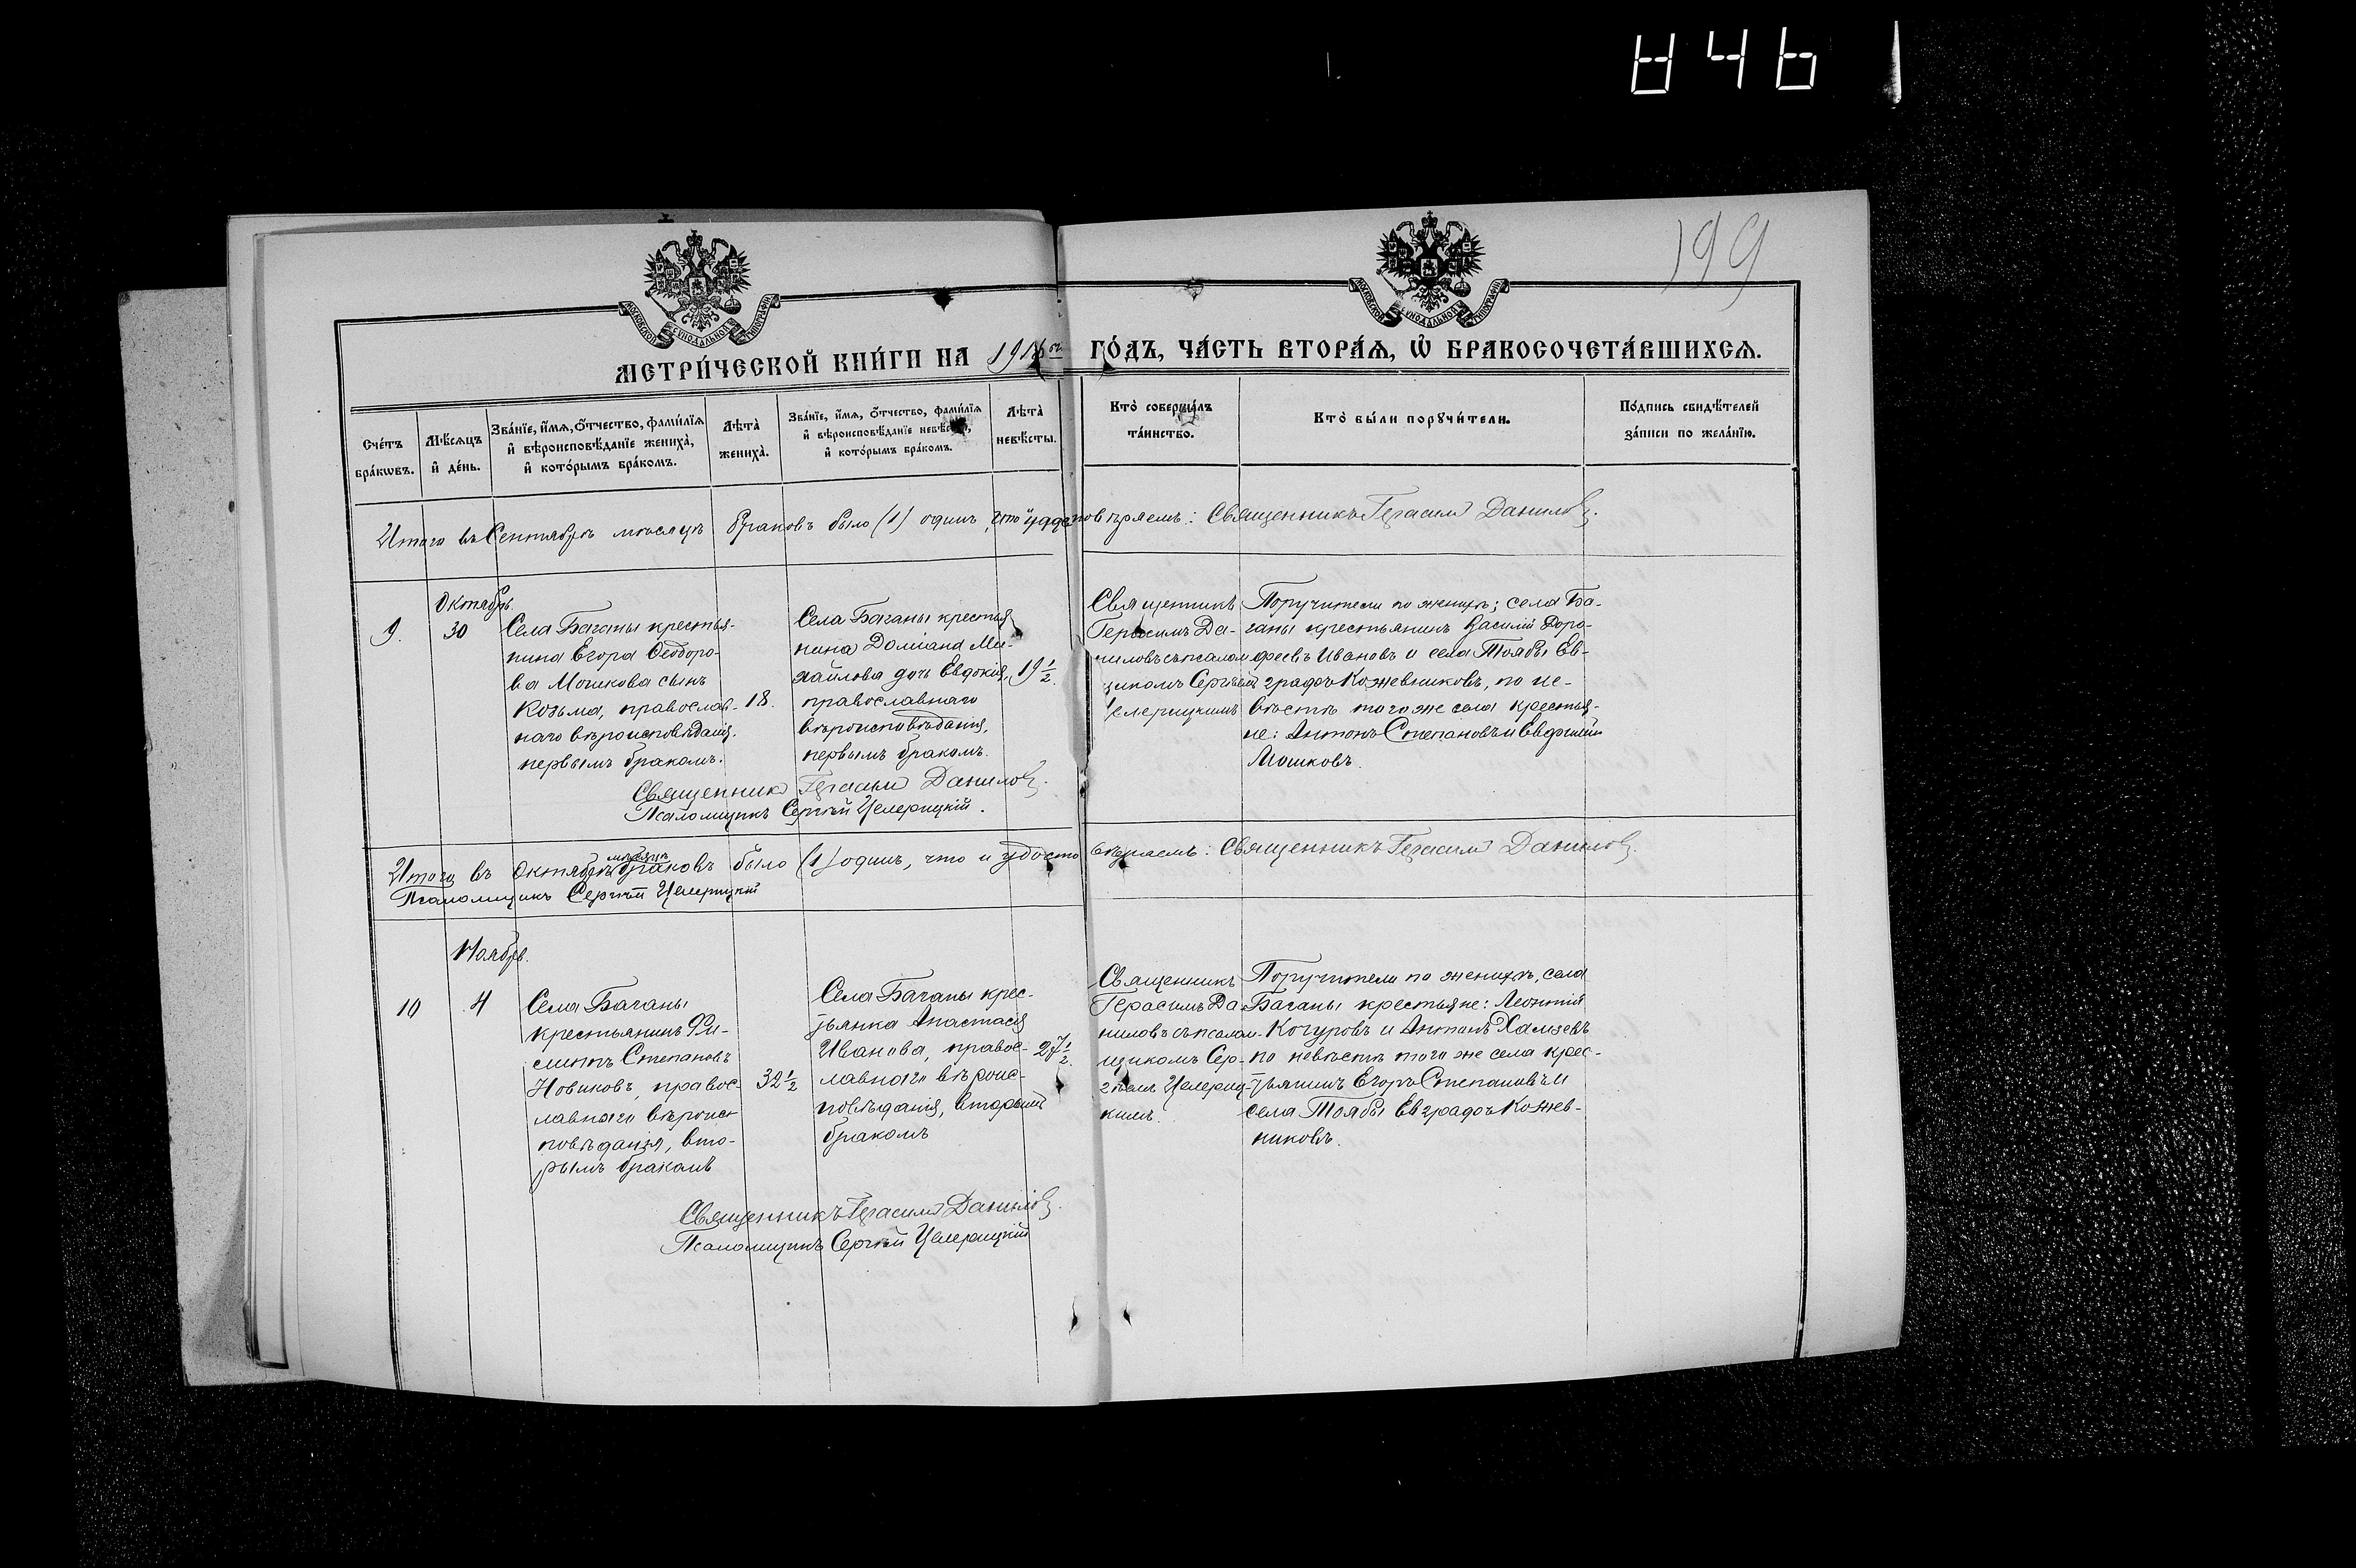 846
199
МОСКОВСКОЙ СѴНОДАЛЬНОЙ ТИПОГРАФІИ
МОСКОВСКОЙ СѴНОДАЛЬНОЙ ТИПОГРАФІИ
МЕТРИ́ЧЕСКОЙ КНИ́ГИ НА 191 го́дъ, ча́сть втора́ѧ, ѡ҆ бракосочета́вшихсѧ.
Сче́тъ бра́кѡвъ.
Мѣ́сѧцъ и҆ де́нь.
Зва́нїе, и҆́мѧ, ѻ҆́тчество, фами́лїѧ и҆ вѣроисповѣ́данїе жениха̀, и҆ кото́рымъ бра́комъ.
Лѣта̀ жениха̀.
Зва́нїе, и҆́мѧ, ѻ҆́тчество, фами́лїѧ и҆ вѣроисповѣ́данїе невѣ́сты, и҆ кото́рымъ бра́комъ.
Лѣта̀ невѣ́сты.
Кто̀ соверши́лъ та́инство.
Кто̀ бы́ли порꙋчи́тели.
По́дпись свидѣ́телей за́писи по жела́нїю.
Итого въ Сентябрѣ мѣсяцѣ браковъ было (1) одинъ, что и удостовѣряемъ: Священникъ Герасимъ Даниловъ.
Октябрь.
9.
30
Села Баганы крестья-
нина Егора Ѳеодоро-
ва Мошкова сынъ
Козьма, православ-
наго вѣроисповѣданія.
первымъ бракомъ.
18.
Села Баганы крестья
нина Доміана Ми-
хайлова дочь Евдокія,
православнаго
вѣроисповѣданія,
первымъ бракомъ.
19 1/2.
Священникъ
Герасимъ Да-
ниловъ съ псалом
щикомъ Сергѣемъ
Целерицкимъ
Поручители по женихѣ; села Ба-
ганы крестьянинъ Василій Доро-
феевъ Ивановъ и села Тоябы Ев-
графъ Кожевниковъ, по не-
вѣстѣ того же села крестья-
не: Антонъ Степановъ и Евфимій
Мошковъ.
Священникъ Герасимъ Даниловъ.
Псаломщикъ Сергѣй Целерицкій.
Итого въ Октябрѣ мѣсяцѣ браковъ было (1) одинъ, что и удостовѣряемъ: Священникъ Герасимъ Даниловъ.
Псаломщикъ Сергѣй Целерицкій
Ноябрь.
10
4
Села Баганы
крестьянинъ Фи-
липпъ Степановъ
Новиковъ, правос-
лавнаго вѣроис-
повѣданія, вто-
рымъ бракомъ
32 1/2
Села Баганы крес-
тьянка Анастасія
Иванова, правос-
лавнаго вѣроис-
повѣданія, вторымъ
бракомъ
27 1/2.
Священникъ
Герасимъ Да-
ниловъ съ псалом-
щикомъ Сер-
гѣемъ Целериц-
кимъ.
Поручители по женихѣ, села
Баганы крестьяне: Леонтій
Кочуровъ и Антонъ Хамзевъ
по невѣстѣ того же села крес-
тьянинъ Егоръ Степановъ и
села Тоябы Евграфъ Кожев-
никовъ.
Священникъ Герасимъ Даниловъ.
Псаломщикъ Сергѣй Целерицкій